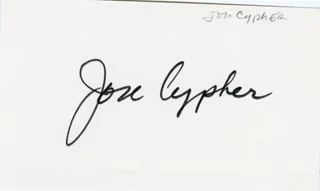 Jon Cypher
Jon Cypher